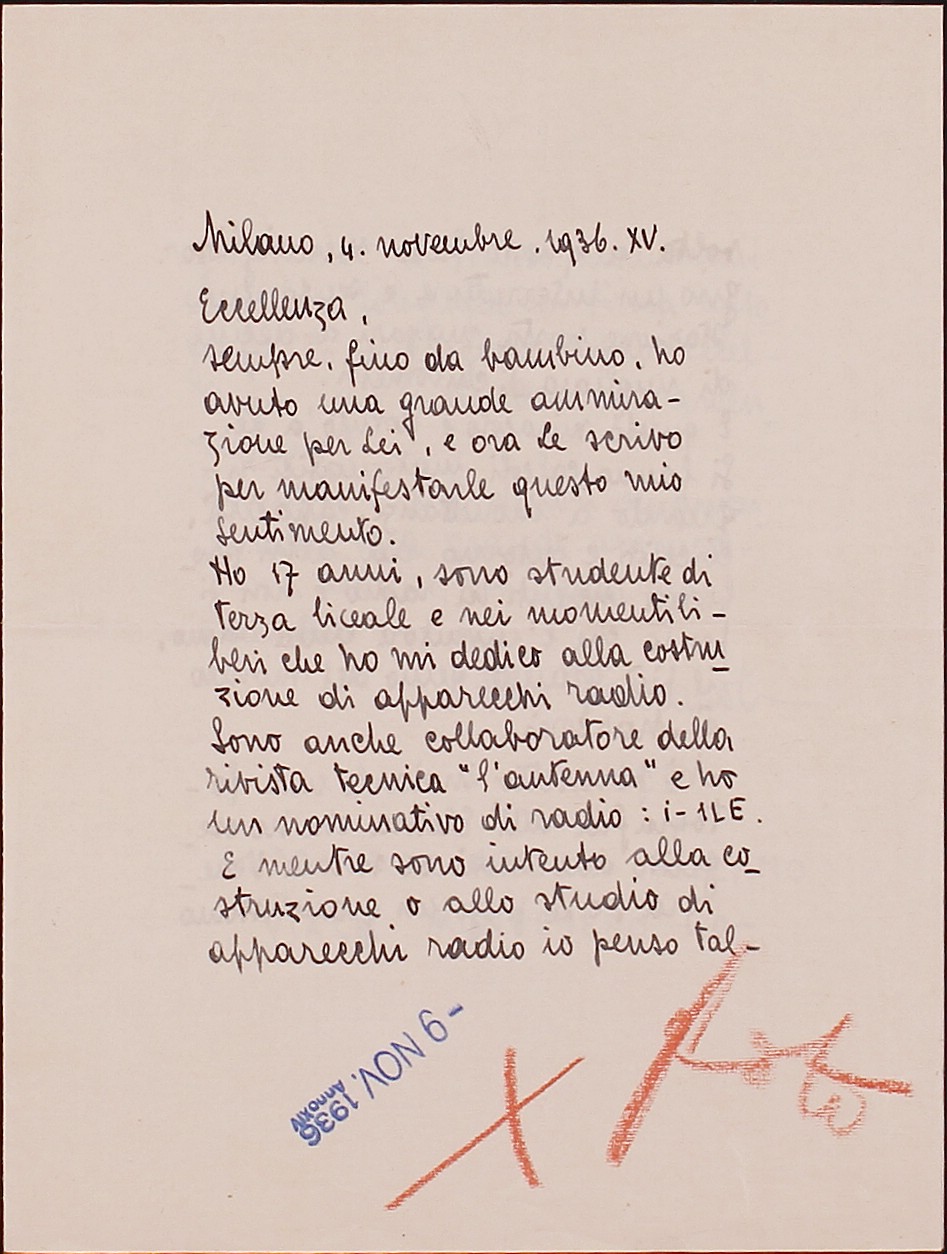 Milano, 4. novembre. 1936. XV.
Eccellenza,
sempre, fino da bambino, ho
avuto una grande ammira-
zione per Lei, e ora Le scrivo
per manifestarle questo mio
sentimento.
Ho 17 anni, sono studente di
terza liceale e nei momenti li-
beri che ho mi dedico alla costru_
zione di apparecchi radio.
Sono anche collaboratore della
rivista tecnica "l'antenna" e ho
un nominativo di radio: i-1LE.
E mentre sono intento alla co_
struzione o allo studio di
apparecchi radio io penso tal-
-9 NOV. 1936
Anno XIV
X